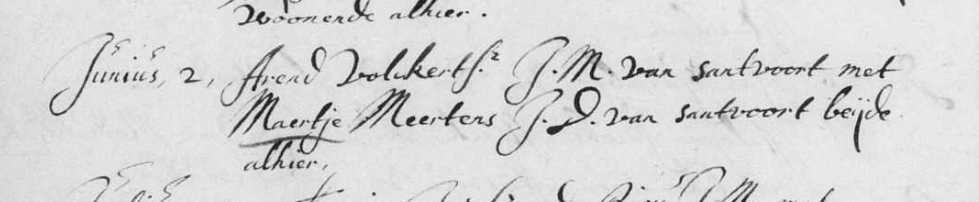 Woonende alhier.
Junius, 2, Arend Volckertsz. J. M. van santvoort met
Maertje Meertens J. D. van santvoort beijde
alhier.